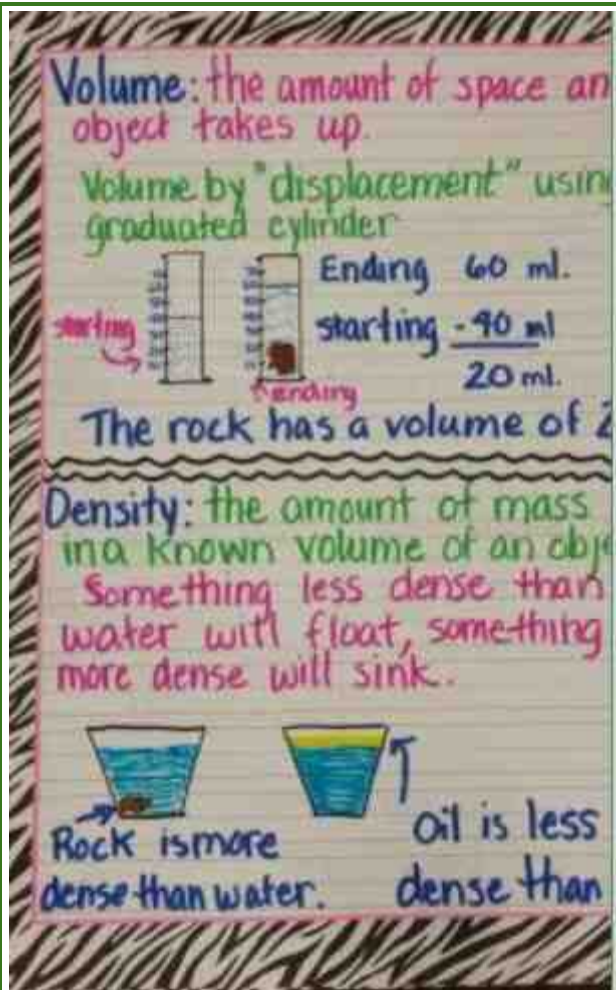 Volume: the amount of space an
object takes up.
Volume by "displacement" using
graduated cylinder
Ending 60 ml.
starting
starting - 40 ml
20 ml.
ending
The rock has a volume of 2
Density: the amount of mass
in a known volume of an obje
Something less dense than
water will float, something
more dense will sink.
Rock is more
dense than water.
Oil is less
dense than